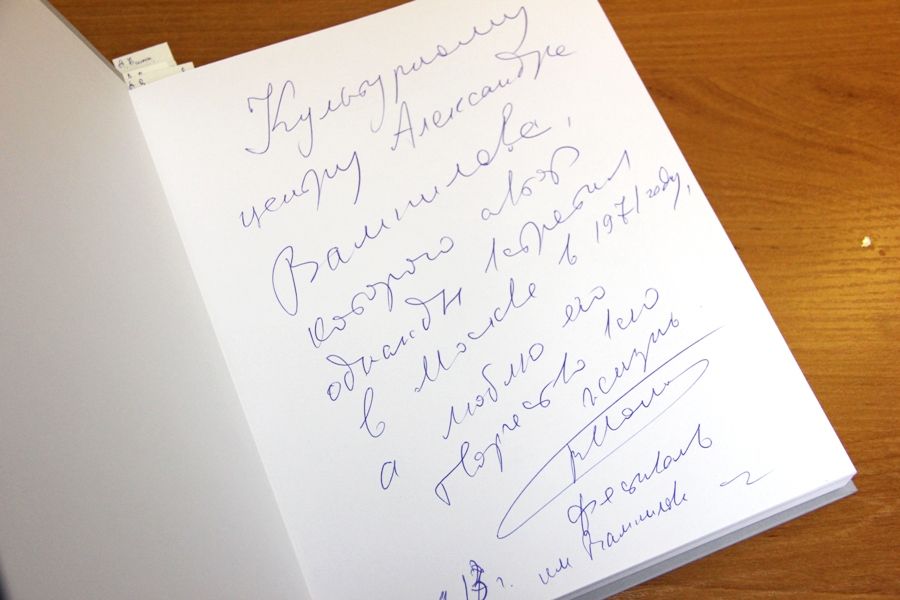 Культурному
центру Александра
Вампилова,
которого автор
однажды встретил
в Москве в 1971 году,
а люблю его
творчество всю
жизнь.
фестиваль
им Вампилова